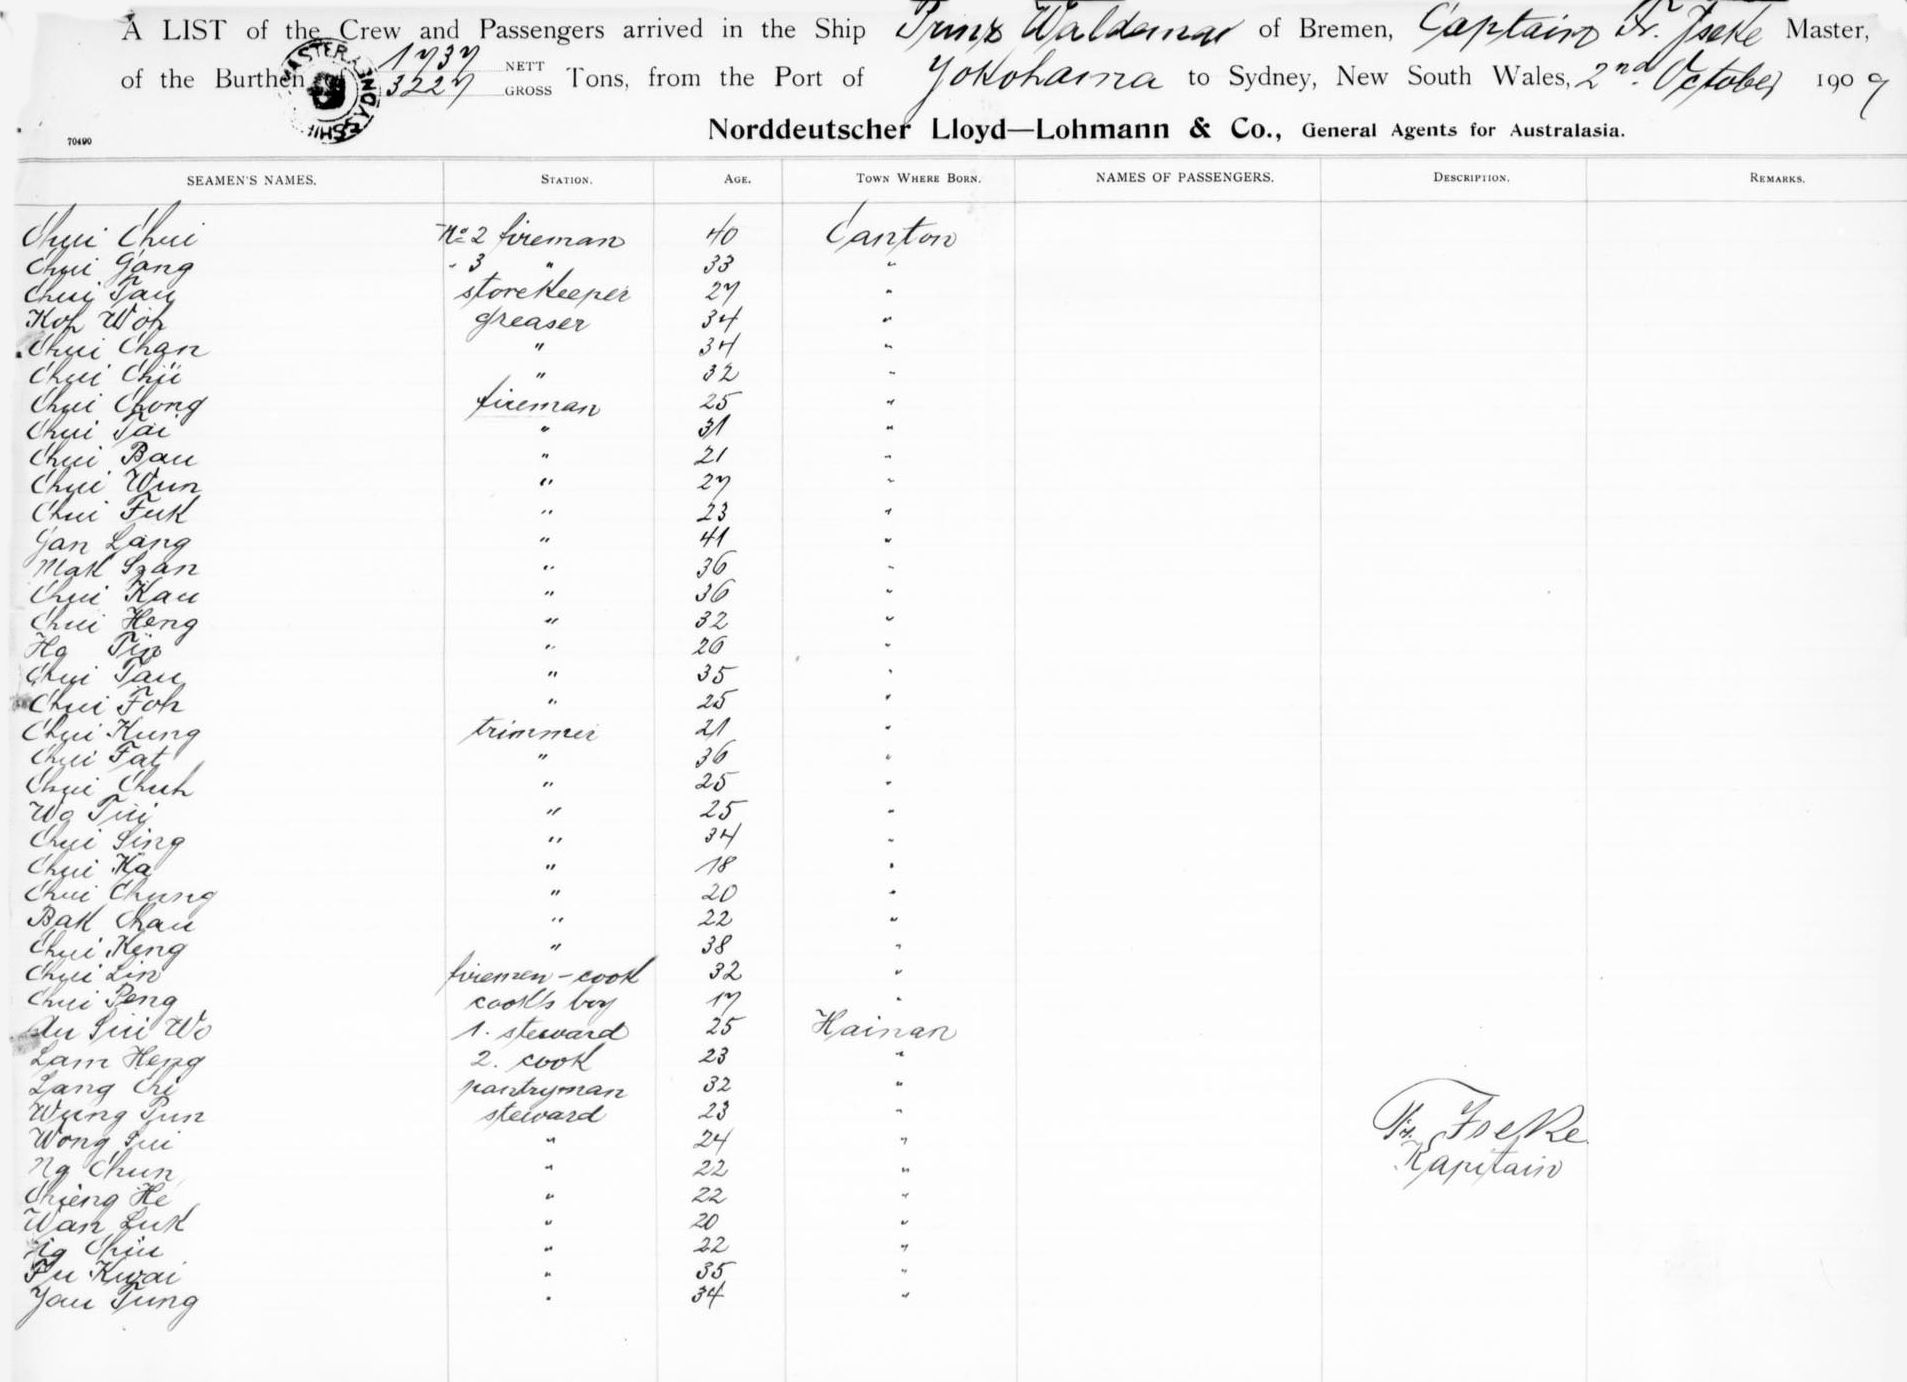 A LIST of the Crew and Passengers arrived in the Ship Prinz Waldemar of Bremen, Captain Fr. Iseke Master,
of the Burthen of 1737 NETT 3227 GROSS Tons, from the Port of Yokohama to Sydney, New South Wales, 2nd October 1909
Norddeutscher Lloyd—Lohmann & Co., General Agents for Australasia.
70490
SEAMEN'S NAMES. STATION. AGE. TOWN WHERE BORN. NAMES OF PASSENGERS. DESCRIPTION. REMARKS.
Chui Chui No 2 fireman 40 Canton
Chui Gang " 3 " 33 "
Chui Tau storekeeper 27 "
Kof Woh greaser 34 "
Chui Chan " 34 "
Chui Chü " 32 "
Chui Chong fireman 25 "
Chui Tai " 31 "
Chui Bau " 21 "
Chui Wun " 27 "
Chui Fuk " 23 "
Gan Lang " 41 "
Mak Szan " 36 "
Chui Kau " 36 "
Chui Heng " 32 "
Ho " 26 "
Chui Tau " 35 "
Chui Foh " 25 "
Chui Kung trimmer 21 "
Chui Fat " 36 "
Chui Chuk " 25 "
Wo Tüi " 25 "
Chui Sing " 34 "
Chui Ka " 18 "
Chui Chung " 20 "
Bak Chau " 22 "
Chui Keng " 38 "
Chui Lin firemen-cook 32 "
Chui Peng cook's boy 17 "
Au Sui Wo 1. steward 25 Hainan
Lam Heng 2. cook 23 "
Lang Chi pantryman 32 "
Wung Pun steward 23 "
Wong Sui " 24 "
Ng Chun " 22 "
Chieng He " 22 "
Wan Luk " 20 "
Ng Chiu " 22 "
Fu Kwai " 35 "
Yau Tung " 34 "
Fr. Iseke
Kapitain